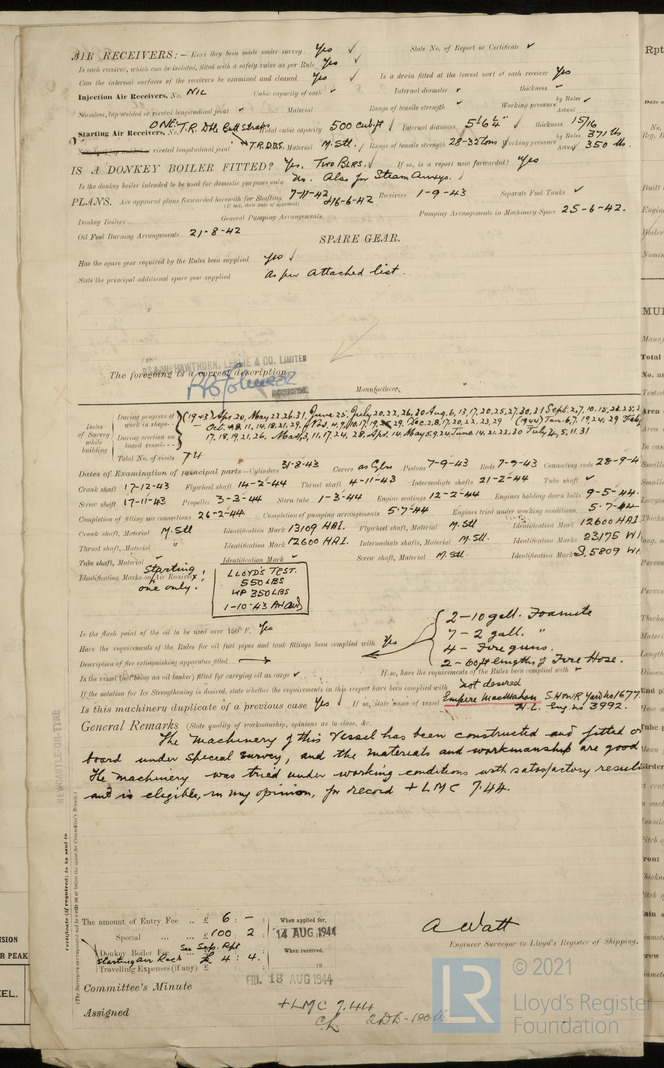 AIR RECEIVERS:— Have they been made under survey Yes ✓ State No. of Report or Certificate ✓
Is each receiver, which can be isolated, fitted with a safety valve as per Rule Yes ✓
Can the internal surfaces of the receivers be examined and cleaned Yes ✓ Is a drain fitted at the lowest part of each receiver Yes
Injection Air Receivers, No. NIL Cubic capacity of each ✓ Internal diameter ✓ thickness ✓
Seamless, lap welded or riveted longitudinal joint ✓ Material Range of tensile strength ✓ Working pressure by Rules ✓ Actual
Starting Air Receivers, No. ONE. T.R. Dbl Butt Straps Total cubic capacity 500 cub ft ✓ Internal diameter 5'6¼" ✓ thickness 15/16
riveted longitudinal joint T.R.D.B.S. Material M. Stl. Range of tensile strength 28-32 tons Working pressure by Rules 371 lbs Actual 350 lb.
IS A DONKEY BOILER FITTED? Yes. Two Blrs. If so, is a report now forwarded? Yes
Is the donkey boiler intended to be used for domestic purposes only No. Also for Steam Auxys.
PLANS. Are approved plans forwarded herewith for Shafting 7-11-42 & 16-6-42 Receivers 1-9-43 Separate Fuel Tanks ✓
(If not, state date of approval)
Donkey Boilers General Pumping Arrangements Pumping Arrangements in Machinery Space 25-6-42.
Oil Fuel Burning Arrangements 21-8-42
SPARE GEAR.
Has the spare gear required by the Rules been supplied Yes ✓
State the principal additional spare gear supplied As per attached list.
HAWTHORN, LESLIE & CO. LIMITED
The foregoing is a correct description,
Manufacturer.
Dates of Survey while building
During progress of work in shops (1943) Apr. 20, May 22. 26. 31, June 25, July 20, 22, 26, 30 Aug. 6, 13, 17, 20, 25, 27, 30, 31 Sept. 2, 7, 10.
During erection on board vessel 17. 18, 19, 21. 26. Mar. 3, 11, 17, 24, 28. Apr. 14. May 5, 9, 24 June 14, 21, 22, 30 July 4, 5, 11, 31
Total No. of visits 74
Dates of Examination of principal parts—Cylinders 31-8-43 Covers as Cyls Pistons 7-9-43 Rods 7-9-43 Connecting rods 28-9-4
Crank shaft 17-12-43 Flywheel shaft 14-2-44 Thrust shaft 4-11-43 Intermediate shafts 21-2-44 Tube shaft ✓
Screw shaft 17-11-43 Propeller 3-3-44 Stern tube 1-3-44 Engine seatings 12-2-44 Engines holding down bolts 9-5-44.
Completion of fitting sea connections 26-2-44 Completion of pumping arrangements 5-7-44 Engines tried under working conditions 5-7-44
Crank shaft, Material M. Stl Identification Mark 13109 HAL. Flywheel shaft, Material M. Stl Identification Mark 12600 HAL
Thrust shaft, Material " Identification Mark 12600 HAL. Intermediate shafts, Material M. Stl. Identification Marks 23175 W
Tube shaft, Material Identification Mark ✓ Screw shaft, Material M. Stl. Identification Mark 5809 W
Identification Marks on Air Receivers Starting: one only.
LLOYD'S TEST.
550 LBS
WP 350 LBS
1-10-43
Is the flash point of the oil to be used over 150° F. Yes
Have the requirements of the Rules for oil fuel pipes and tank fittings been complied with Yes
Description of fire extinguishing apparatus fitted
2-10 gall. Foamite
7-2 gall. "
4- Fire guns.
2-60ft lengths of Fire Hose.
Is the vessel (not being an oil tanker) fitted for carrying oil as cargo ✓ If so, have the requirements of the Rules been complied with ✓
If the notation for Ice Strengthening is desired, state whether the requirements in this respect have been complied with not desired
Is this machinery duplicate of a previous case Yes ✓ If so, state name of vessel Empire MacMahon S.H&W.R Yard No 1677.
H.L. Eng. no 3992.
General Remarks (State quality of workmanship, opinions as to class, &c.
The machinery of this Vessel has been constructed and fitted on
board under special survey, and the materials and workmanship are good
The machinery was tried under working conditions with satisfactory results
and is eligible, in my opinion, for record +LMC 7.44.
NEWCASTLE-ON-TYNE
Certificate (if required) to be sent to
(The Surveyors are requested not to write on or below the space for Committee's Minute.)
The amount of Entry Fee .. £ 6 : - : When applied for,
Special ... ... £ 100 : 2 : 14 AUG 1944
Donkey Boiler Fee See Sep. Rpt When received,
Starting Air £ 4 : 4.
Travelling Expenses (if any) £ 19
A Watt
Engineer Surveyor to Lloyd's Register of Shipping.
Committee's Minute FRI. 18 AUG 1944
Assigned +LMC 7.44
CL 2DB-100 lb
LR
© 2021
Lloyd's Register
Foundation